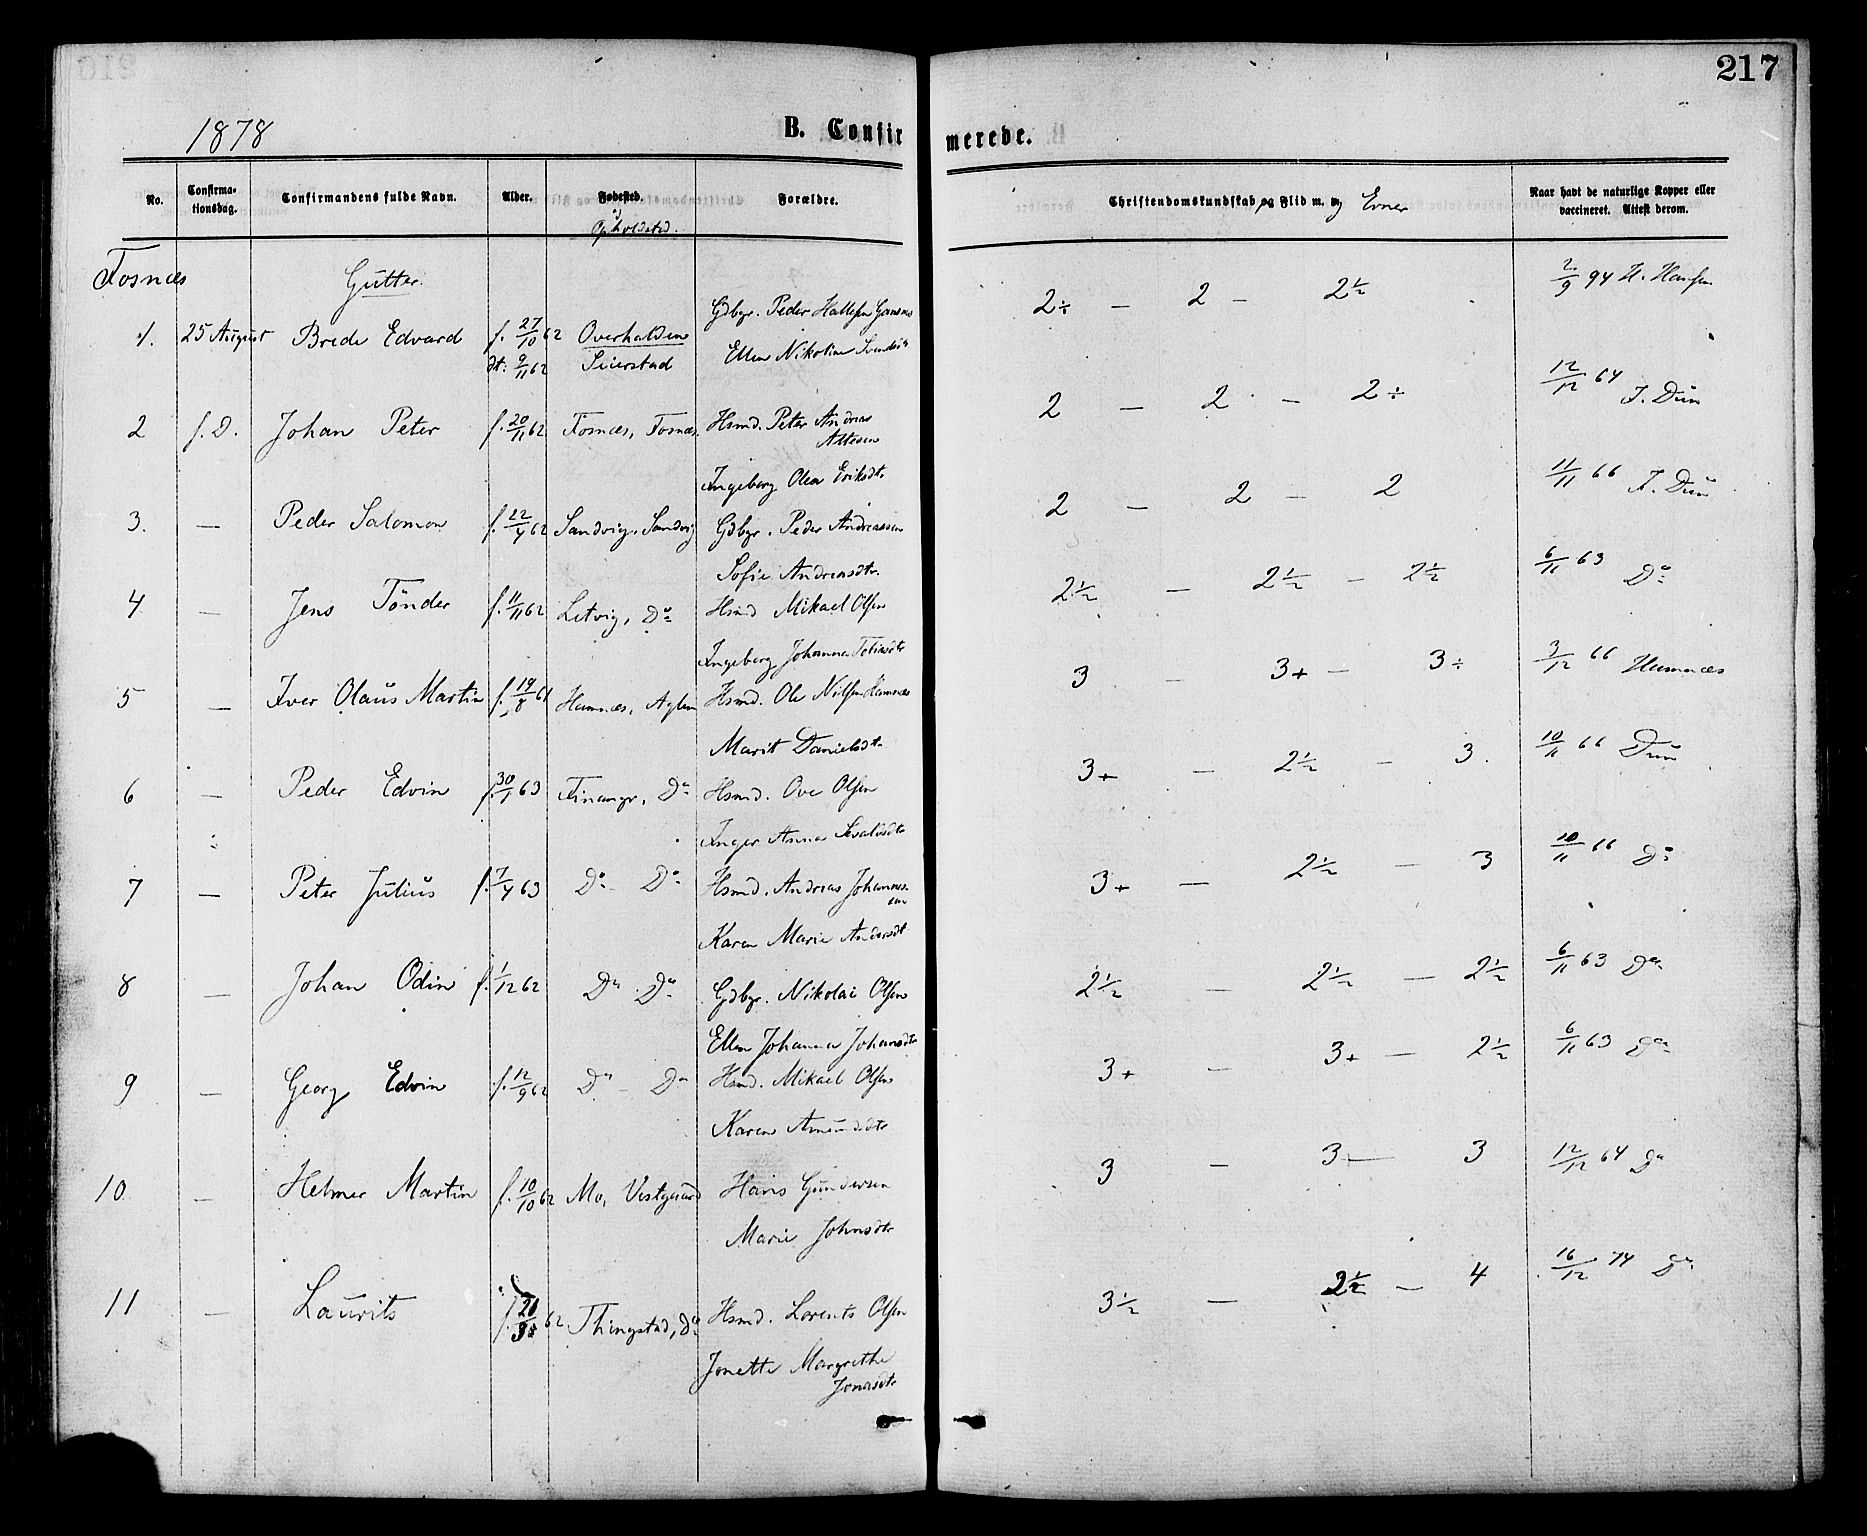 217
1878
B. Confirmerede.
No. Confirmationsdag. Confirmandens fulde Navn. Alder. Fødested. Forældre. Christendomskundskab og Flid m. m. Naar havt de naturlige Kopper eller vaccineret. Attest derom.
og Opholdsted. og Evner
Fosnæs Gutter.
Gdbgr. Peder Hallesen 2÷ — 2 — 2½ 2/9 94 H. Hansen
1. 25 August Brede Edvard f. 27/10 62 Overhalden
dt: 9/11 62 Seierstad Ellen Nikoline
2 f. D. Johan Peter f. 20/11 62 Fosnæs, Fosnæs. Hsmd. Peter Andreas 2 — 2 — 2÷ 12/12 64 J. Dun
Attesen
Ingeborg Olea Eriksdtr
3. — Peder Salomon f. 22/4 62 Sandvig, Sandvig Gdbgr. Peder Andreassen 2 — 2 — 2 11/11 66 J. Dun
Sofie Andreasdtr.
4 — Jens Tönder f. 11/11 62 Letvig, Do Hsmd Mikael Olsen 2½ — 2½ — 2½ 6/11 63 Do
Ingeborg Johanna Tobiasdtr
5 — Iver Olaus Martin f. 19/8 61 Hamnæs, Aglen Hsmd. Ole Nilsen Hamnæs 3 — 3+ — 3÷ 3/12 66 Hamnæs
Marit Danielsdtr
6 — Peder Edvin f. 30/1 63 Finangr, Do Hsmd. Ove Olsen 3+ — 2½ — 3. 10/11 66 Dun
Inger Anna
7 — Peter Julius f. 7/4 63 Do — Do Hsmd. Andreas Johannessen 3+ — 2½ — 3 10/11 66 Do
Karen Marie Andersdt
8 — Johan Odin f. 1/12 62 Do Do Gdbgr. Nikolai Olsen 2½ — 2½ — 2½ 6/11 63 Do
Ellen Johanna Johansdtr
9 — Georg Edvin f. 12/9 62 Do — Do Hsmd. Mikael Olsen 3+ — 3+ — 2½ 6/11 63 Do
Karen Amundsdtr
10 — Helmer Martin f. 10/10 62 Mo, Vestgaard Hans Gundersen 3 — 3 — 3 12/12 64 Do
Marie Johnsdtr
11 — Laurits 62 Thingstad, Do Hsmd. Lorents Olsen 3½ — — 4 16/12 74 Do
Jonette Margrethe
Jonasdtr